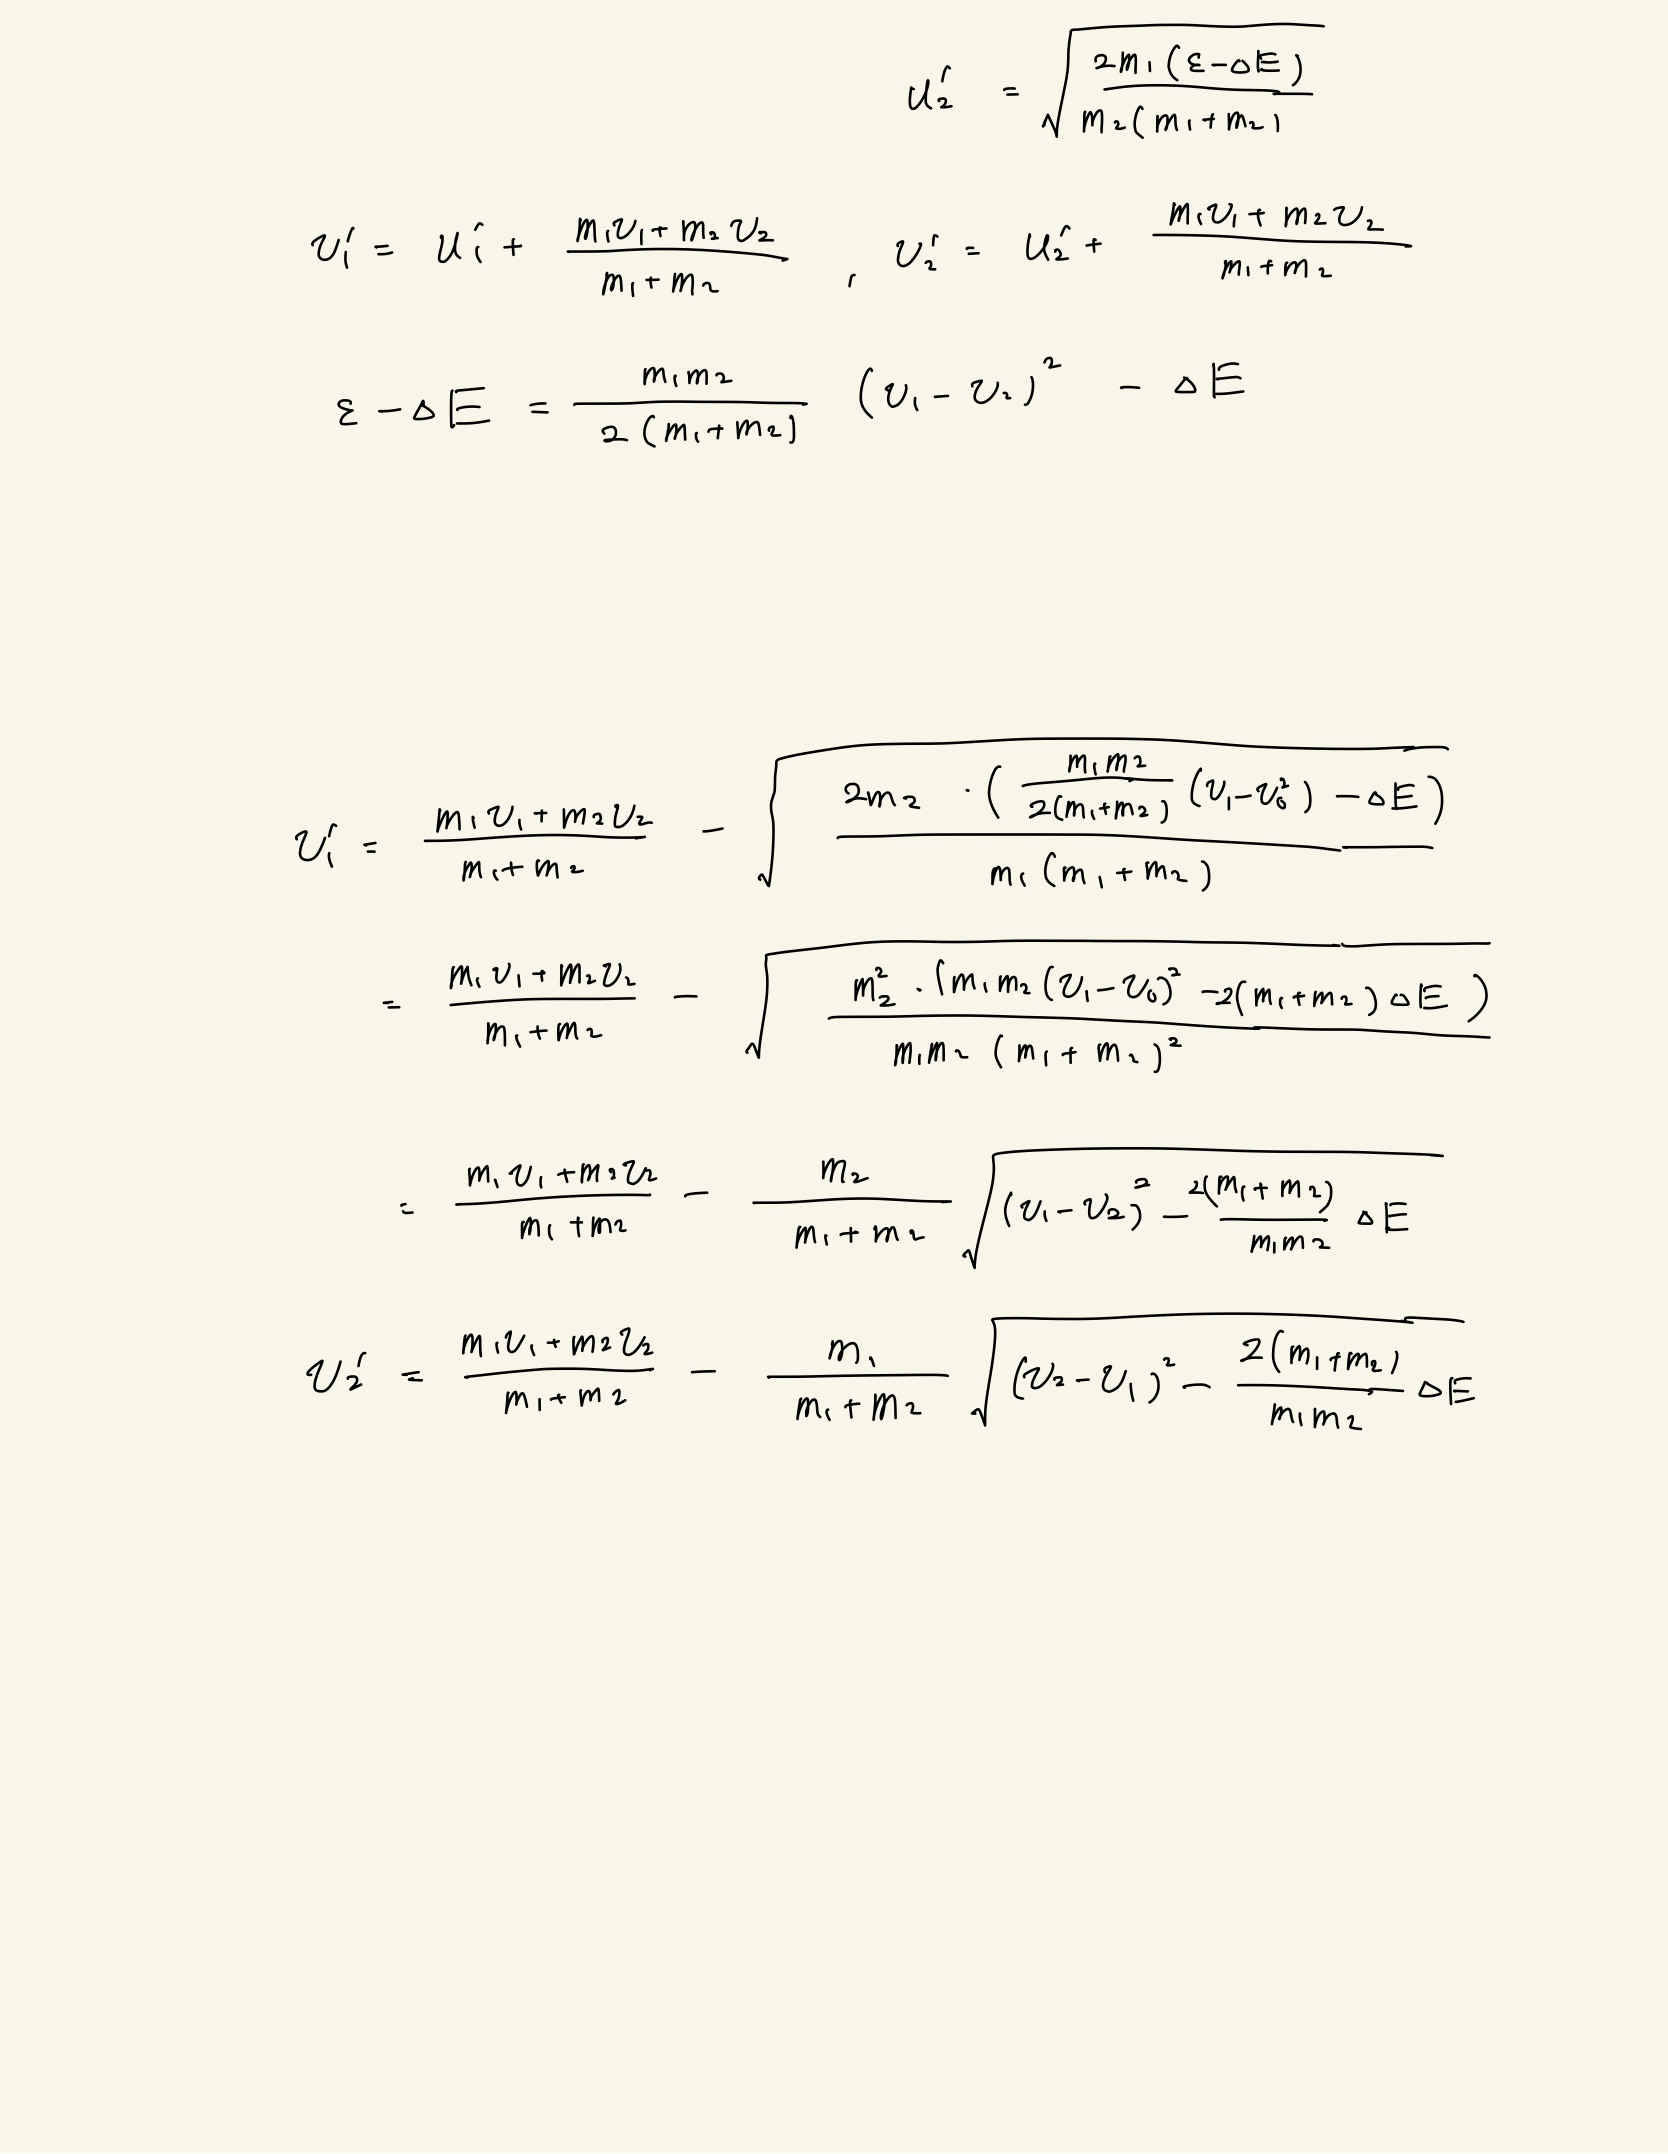 u₂' = √(2m₁(ε-ΔE) / m₂(m₁+m₂))
v₁' = u₁' + (m₁v₁+m₂v₂)/(m₁+m₂) , v₂' = u₂' + (m₁v₁+m₂v₂)/(m₁+m₂)
ε-ΔE = m₁m₂/2(m₁+m₂) (v₁-v₂)² - ΔE
v₁' = (m₁v₁+m₂v₂)/(m₁+m₂) - √(2m₂·(m₁m₂/2(m₁+m₂) (v₁-v₀²) -ΔE) / m₁(m₁+m₂))
= (m₁v₁+m₂v₂)/(m₁+m₂) - √(m₂²·(m₁m₂(v₁-v₀)² -2(m₁+m₂)ΔE) / m₁m₂(m₁+m₂)²)
= (m₁v₁+m₂v₂)/(m₁+m₂) - m₂/(m₁+m₂) √((v₁-v₂)² - 2(m₁+m₂)/m₁m₂ ΔE)
v₂' = (m₁v₁+m₂v₂)/(m₁+m₂) - m₁/(m₁+m₂) √((v₂-v₁)² - 2(m₁+m₂)/m₁m₂ ΔE)